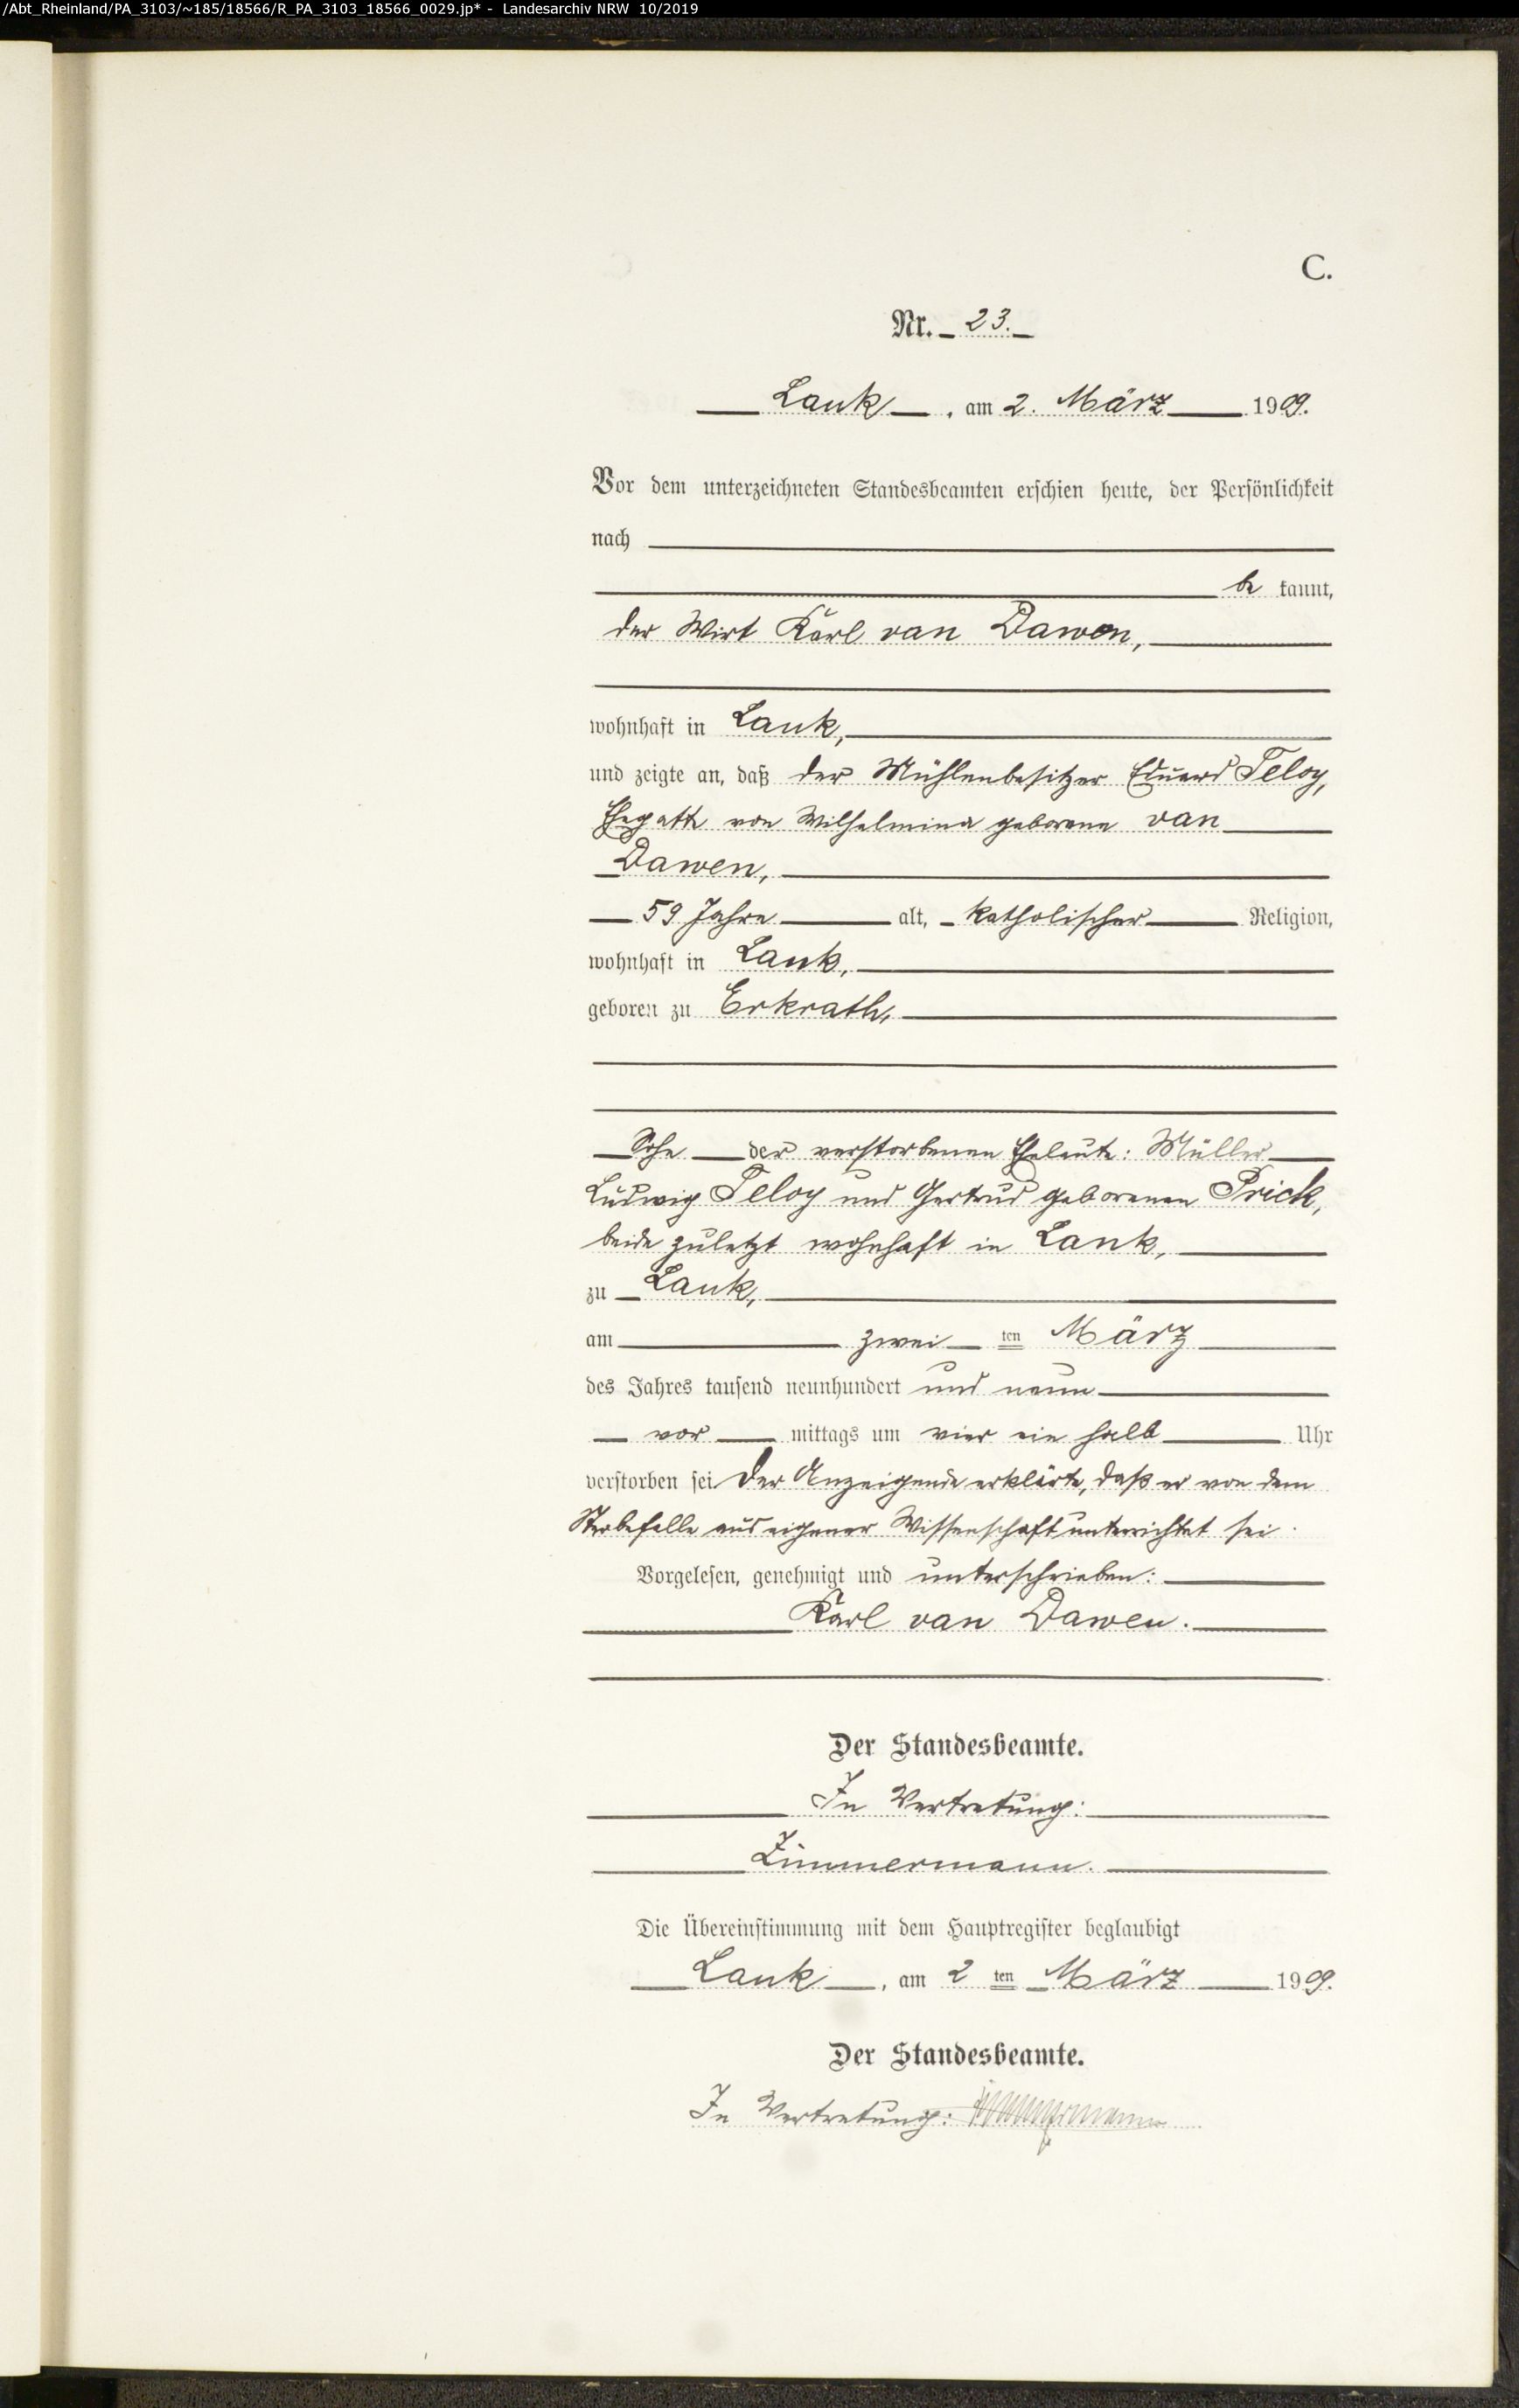 /Abt_Rheinland/PA_3103/~185/18566/R_PA_3103_18566_0029.jp* - Landesarchiv NRW 10/2019
C.
Nr. 23.
Lank, am 2. März 1909.
Vor dem unterzeichneten Standesbeamten erschien heute, der Persönlichkeit
nach
be kannt,
der Wirt Karl van Dawen,
wohnhaft in Lank,
und zeigte an, daß der Mühlenbesitzer Eduard Teloy,
Ehegatte von Wilhelmina geborene van
Dawen,
59 Jahre alt, katholischer Religion,
wohnhaft in Lank,
geboren zu Erkrath,
Sohn der verstorbenen Eheleute: Müller
Ludwig Teloy und Gertrud geborenen Prick,
beide zuletzt wohnhaft in Lank,
zu Lank,
am zwei ten März
des Jahres tausend neunhundert und neun
vor mittags um vier ein halb Uhr
verstorben sei. Der Anzeigende erklärte, daß er von dem
Sterbefalle aus eigener Wissenschaft unterrichtet sei.
Vorgelesen, genehmigt und unterschrieben:
Karl van Dawen.
Der Standesbeamte.
In Vertretung:
Zimmermann.
Die Übereinstimmung mit dem Hauptregister beglaubigt
Lank, am 2 ten März 1909.
Der Standesbeamte.
In Vertretung: Zimmermann